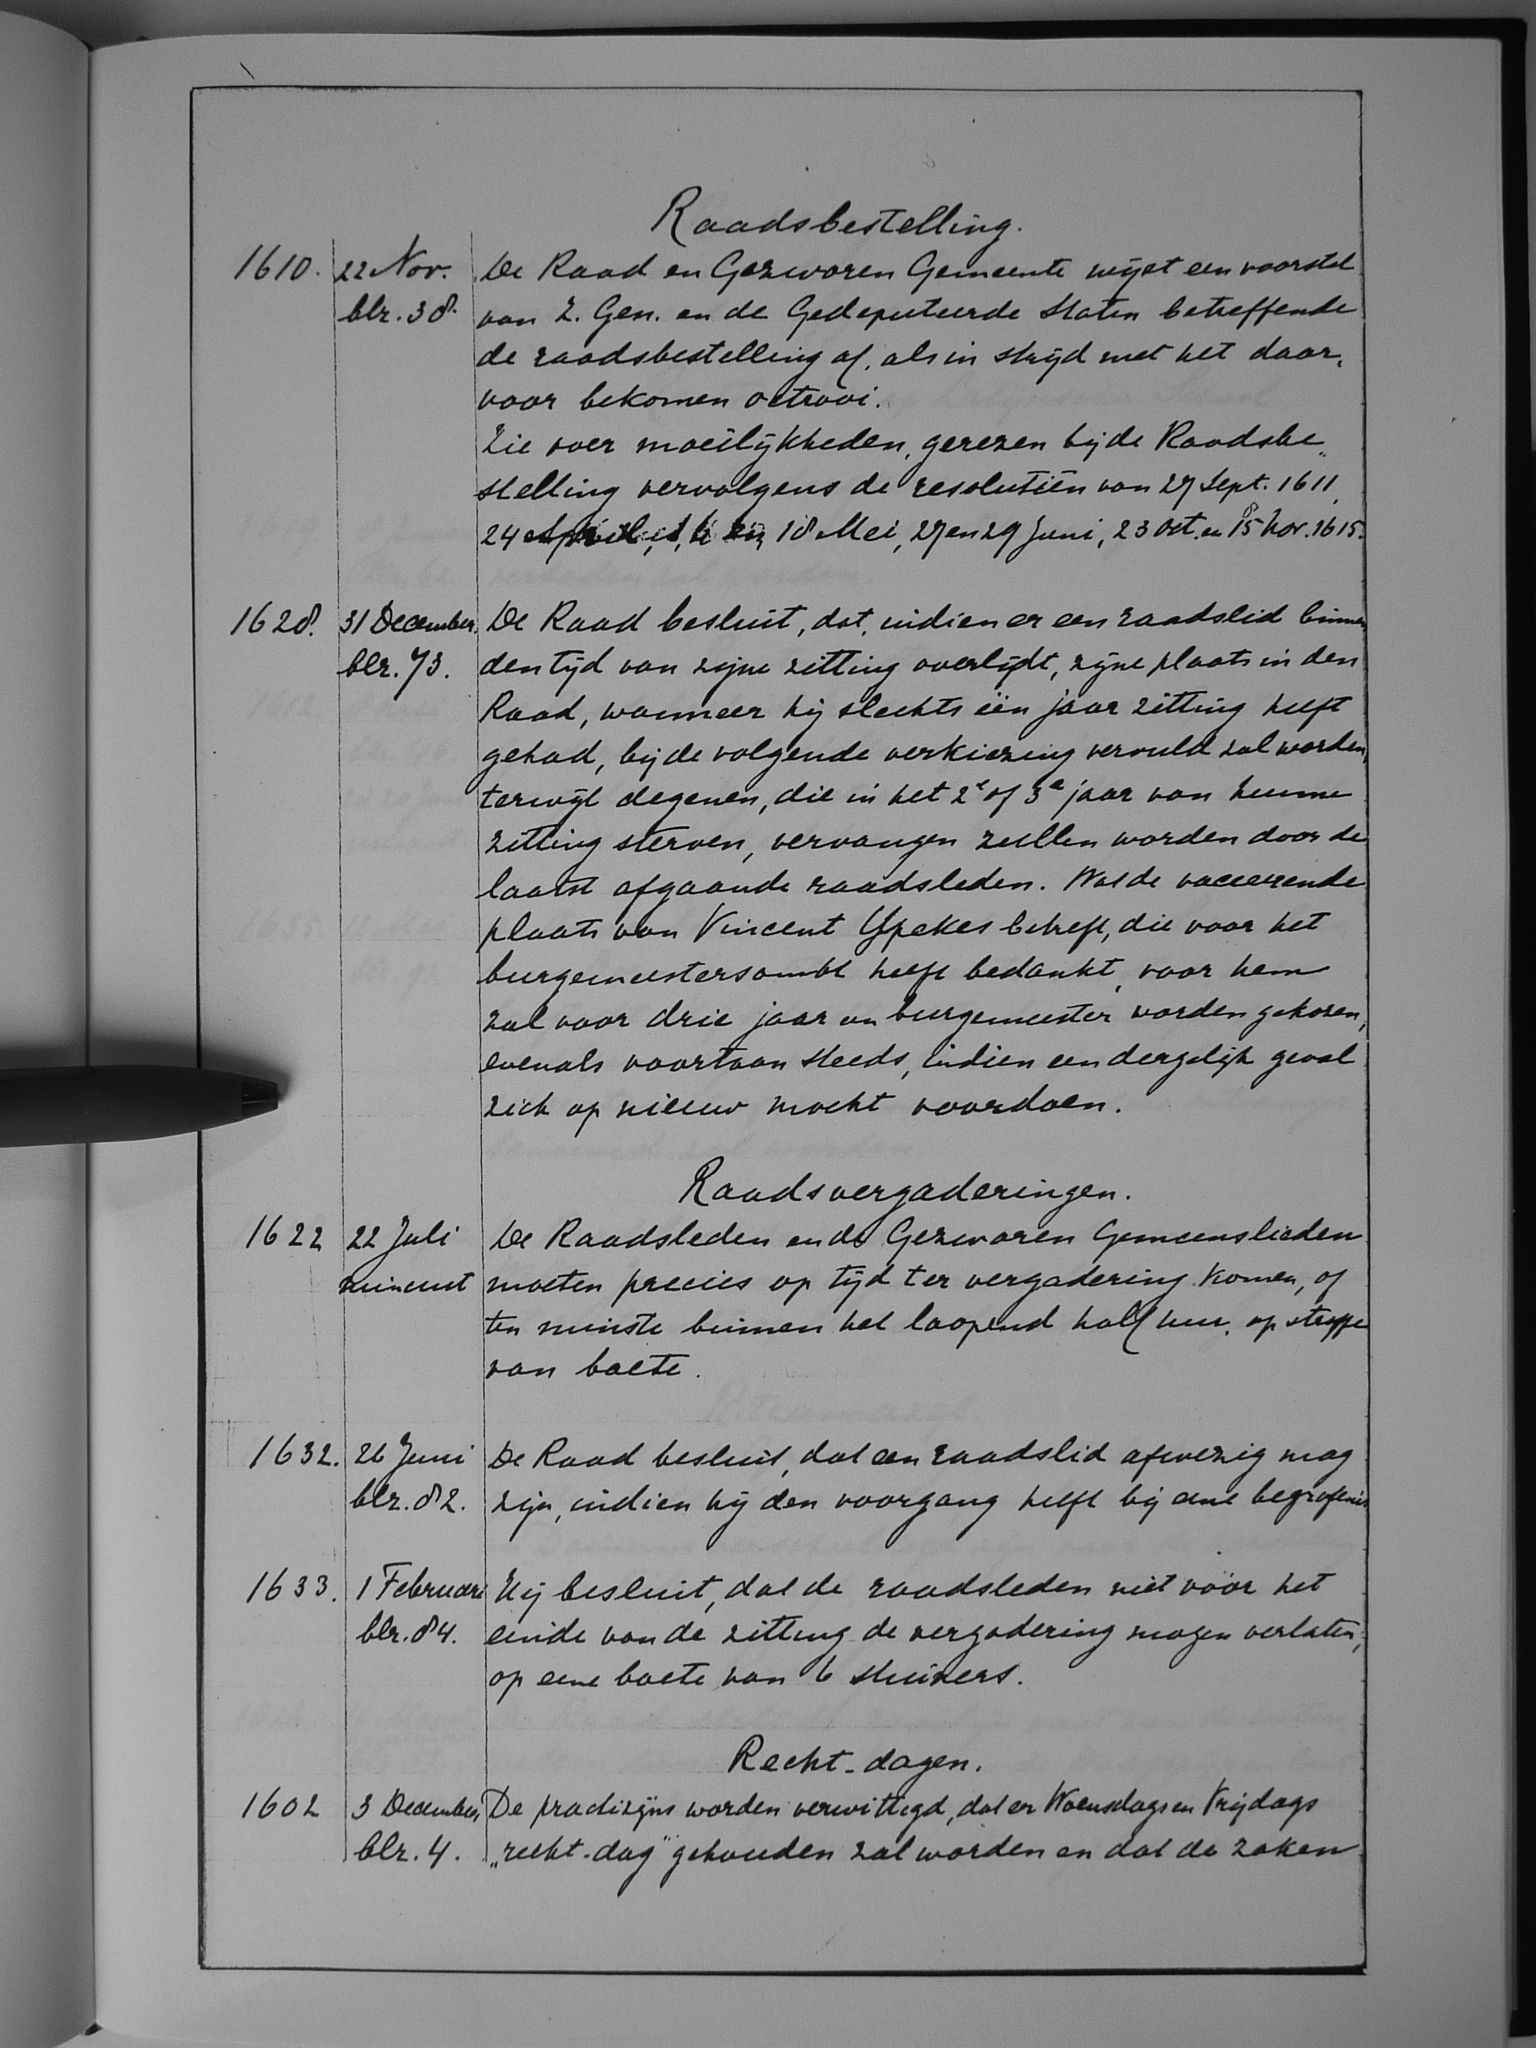 Raadsbestelling.
1610. 22 Nov. De Raad en Gezworen Gemeente wijst een voorstel
blz. 38. van Z. Gen. en de Gedeputeerde Staten betreffende
de raadsbestelling af, als in strijd met het daar-
voor bekomen octrooi.
Zie over moeilijkheden, gerezen bij de Raadsbe-
stelling vervolgens de resolutiën van 27 Sept. 1611,
24 April, 18 Mei, 27 en 29 Juni, 23 Oct. en 15 Nov. 1615.
1628. 31 December, De Raad besluit, dat, indien er een raadslid binnen
blz. 73. den tijd van zijne zitting overlijdt, zijne plaats in den
Raad, wanneer hij slechts één jaar zitting heeft
gehad, bij de volgende verkiezing vervuld zal worden,
terwijl degenen, die in het 2e of 3e jaar van hunne
zitting sterven, vervangen zullen worden door de
laatst afgaande raadsleden. Wat de vaceerende
plaats van Vincent Ypekes betreft, die voor het
burgemeestersambt heeft bedankt, voor hem
zal voor drie jaar een burgemeester worden gekozen,
evenals voortaan steeds, indien een dergelijk geval
zich op nieuw mocht voordoen.
Raadsvergaderingen.
1622 22 Juli De Raadsleden en de Gezworen Gemeenslieden
minuut moeten precies op tijd ter vergadering komen, of
ten minste binnen het loopend half uur, op straffe
van boete.
1632. 26 Juni De Raad besluit, dat een raadslid afwezig mag
blz. 82. zijn, indien hij den voorgang heeft bij eene begrafenis
1633. 1 Februari Hij besluit, dat de raadsleden niet vóór het
blz. 84. einde van de zitting de vergadering mogen verlaten,
op eene boete van 6 stuivers.
Recht-dagen.
1602 3 December, De practizijns worden verwittigd, dat er Woensdags en Vrijdags
blz. 4. „recht-dag" gehouden zal worden en dat de zaken